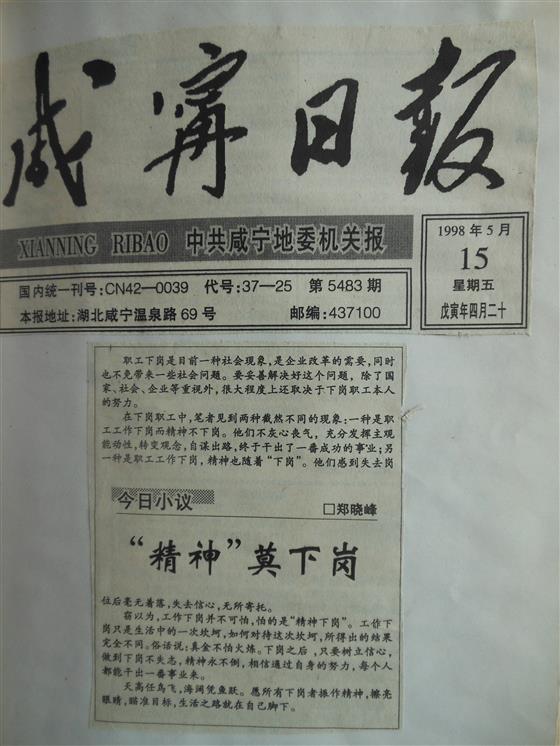 咸宁日报
XIANNING RIBAO 中共咸宁地委机关报
国内统一刊号:CN42—0039 代号:37—25 第5483期
本报地址:湖北咸宁温泉路69号 邮编:437100
1998年5月
15
星期五
戊寅年四月二十
职工下岗是目前一种社会现象,是企业改革的需要,同时
也不免带来一些社会问题。要妥善解决好这个问题,除了国
家、社会、企业等重视外,很大程度上还取决于下岗职工本人
的努力。
在下岗职工中,笔者见到两种截然不同的现象:一种是职
工工作下岗而精神不下岗。他们不灰心丧气,充分发挥主观
能动性,转变观念,自谋出路,终于干出了一番成功的事业;另
一种是职工工作下岗,精神也随着“下岗”。他们感到失去岗
今日小议
□郑晓峰
“精神”莫下岗
位后毫无着落,失去信心,无所寄托。
窃以为,工作下岗并不可怕,怕的是“精神下岗”。工作下
岗只是生活中的一次坎坷,如何对待这次坎坷,所得出的结果
完全不同。俗话说:真金不怕火炼。下岗之后,只要树立信心,
做到下岗不失志,精神永不倒,相信通过自身的努力,每个人
都能干出一番事业来。
天高任鸟飞,海阔凭鱼跃。愿所有下岗者振作精神,擦亮
眼睛,瞄准目标,生活之路就在自己脚下。